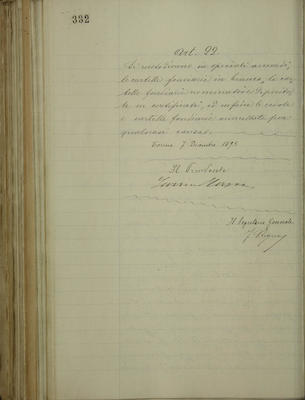 332
Art. 22
Si custodiscono in speciali armadi,
le cartelle fondiarie in bianco, le car-
telle fondiarie nominative deposita-
te in certificati, ed infine le cedole
e cartelle fondiarie annullate per
qualsiasi causa.
Torino 7 Dicembre 1895
Il Presidente
Il Segretario Generale